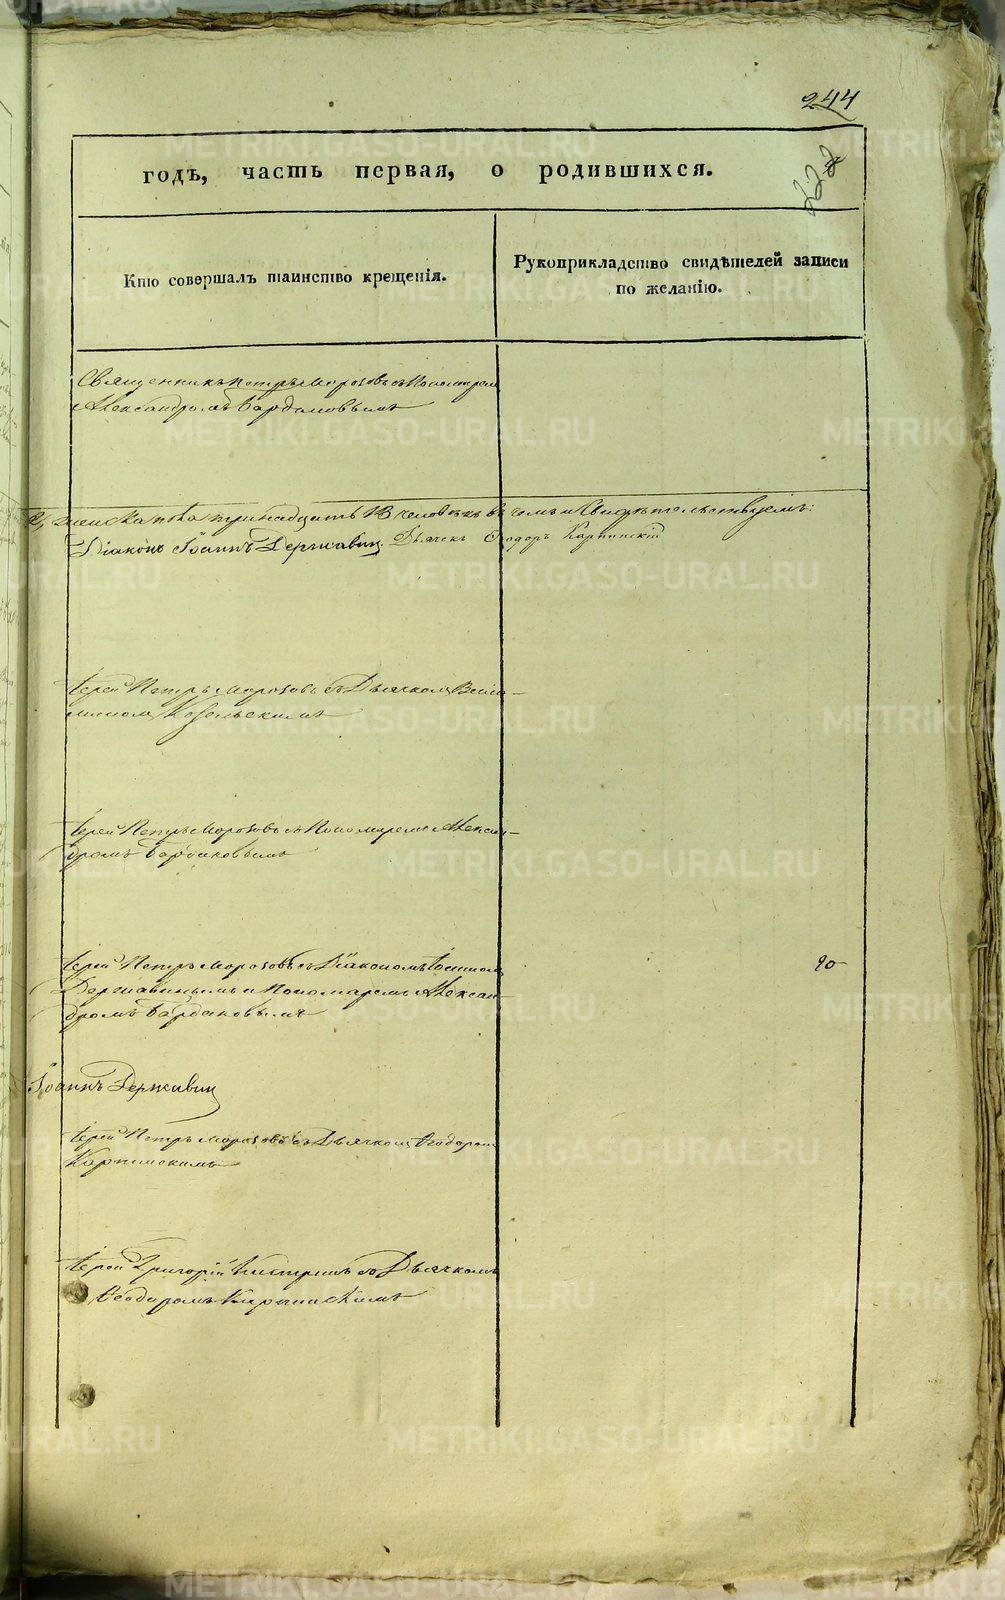 244
годъ, часть первая, о родившихся.
Кто совершалъ таинство крещенія.
Рукоприкладство свидѣтелей записи
по желанію.
Священникъ Петръ Морозовъ съ Пономарем
Александромъ Бардаковымъ
женска пола тринадцать 13 человѣкъ въ чемъ и Свидѣтельствуемъ:
Діаконъ Іоаннъ Державин Дьячекъ Ѳеодоръ Карпинскій
Іерей Петръ Морозовъ съ Дьячкомъ
Іерей Петръ Морозовъ съ Пономаремъ Алексан-
дромъ Бардаковымъ
Іерей Петръ Морозовъ съ Діакономъ Іоанном
Державинымъ и Пономаремъ Алексан-
дромъ Бардаковымъ
90
Іоаннъ Державин
Іерей Петръ Морозовъ съ Дьячкомъ Ѳеодором
Карпинскимъ
Іерей Григорій съ Дьячкомъ
Ѳеодоромъ Карпинскимъ
METRIKI.GASO-URAL.RU